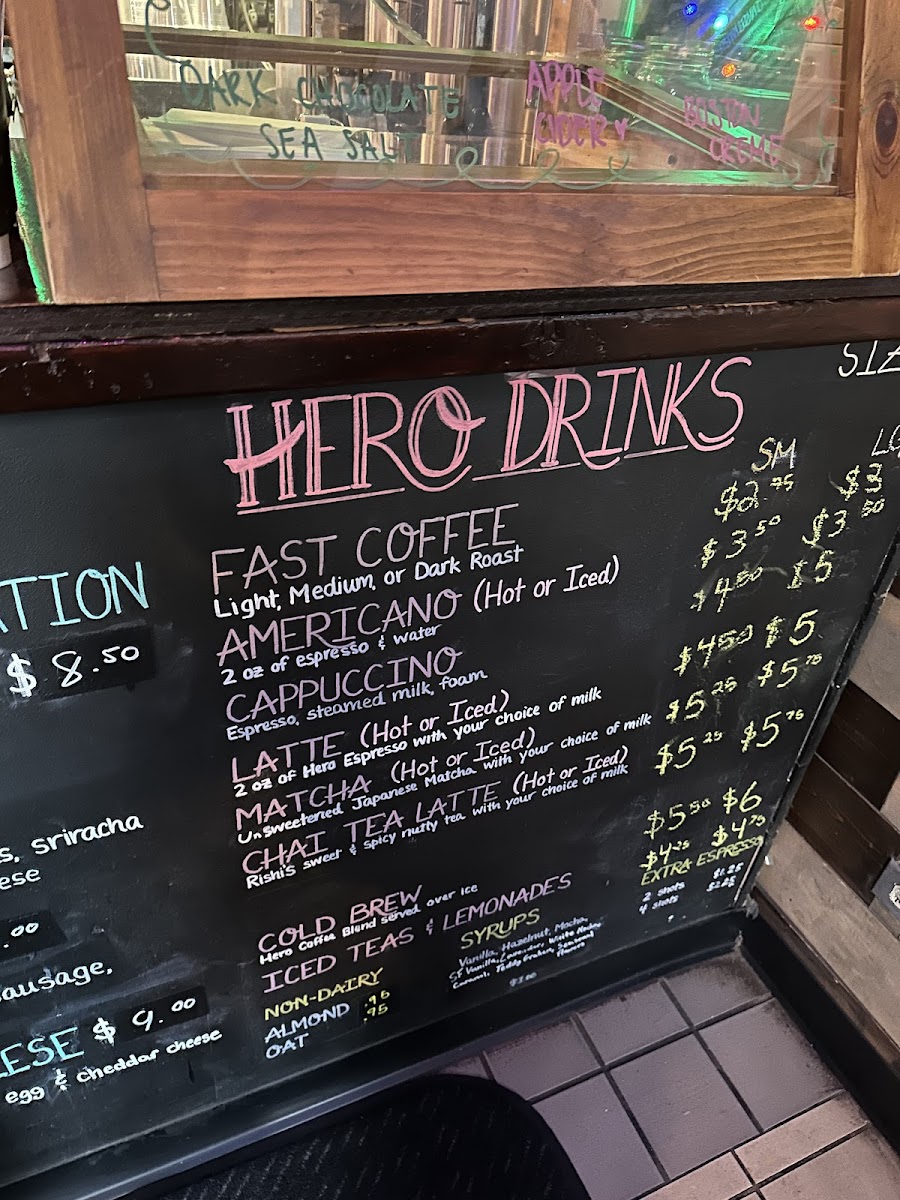 DARK CHOCOLATE
SEA SALT
APPLE
CIDER
BOSTON
CREME
HERO DRINKS
SM
FAST COFFEE $2.75 $3
Light, Medium, or Dark Roast
AMERICANO (Hot or Iced) $3.50 $3.50
2 oz of espresso & water
CAPPUCCINO $4.50 $5
Espresso, steamed milk, foam
LATTE (Hot or Iced) $4.50 $5
2 oz of Hero Espresso with your choice of milk
MATCHA (Hot or Iced) $5.25 $5.75
Unsweetened Japanese Matcha with your choice of milk
CHAI TEA LATTE (Hot or Iced) $5.25 $5.75
Rishi's sweet & spicy nutty tea with your choice of milk
COLD BREW $5.50 $6
Hero Coffee Blend served over ice
ICED TEAS & LEMONADES $4.25 $4.75
EXTRA ESPRESSO
2 shots $1.25
4 shots $2.25
NON-DAIRY
ALMOND .95
OAT .95
SYRUPS
Vanilla, Hazelnut, Mocha,
SF Vanilla, Lavender, White Mocha,
Caramel, Teddy Graham, Seasonal
flavors
$8.50
sriracha
.00
sausage,
$9.00
egg & cheddar cheese